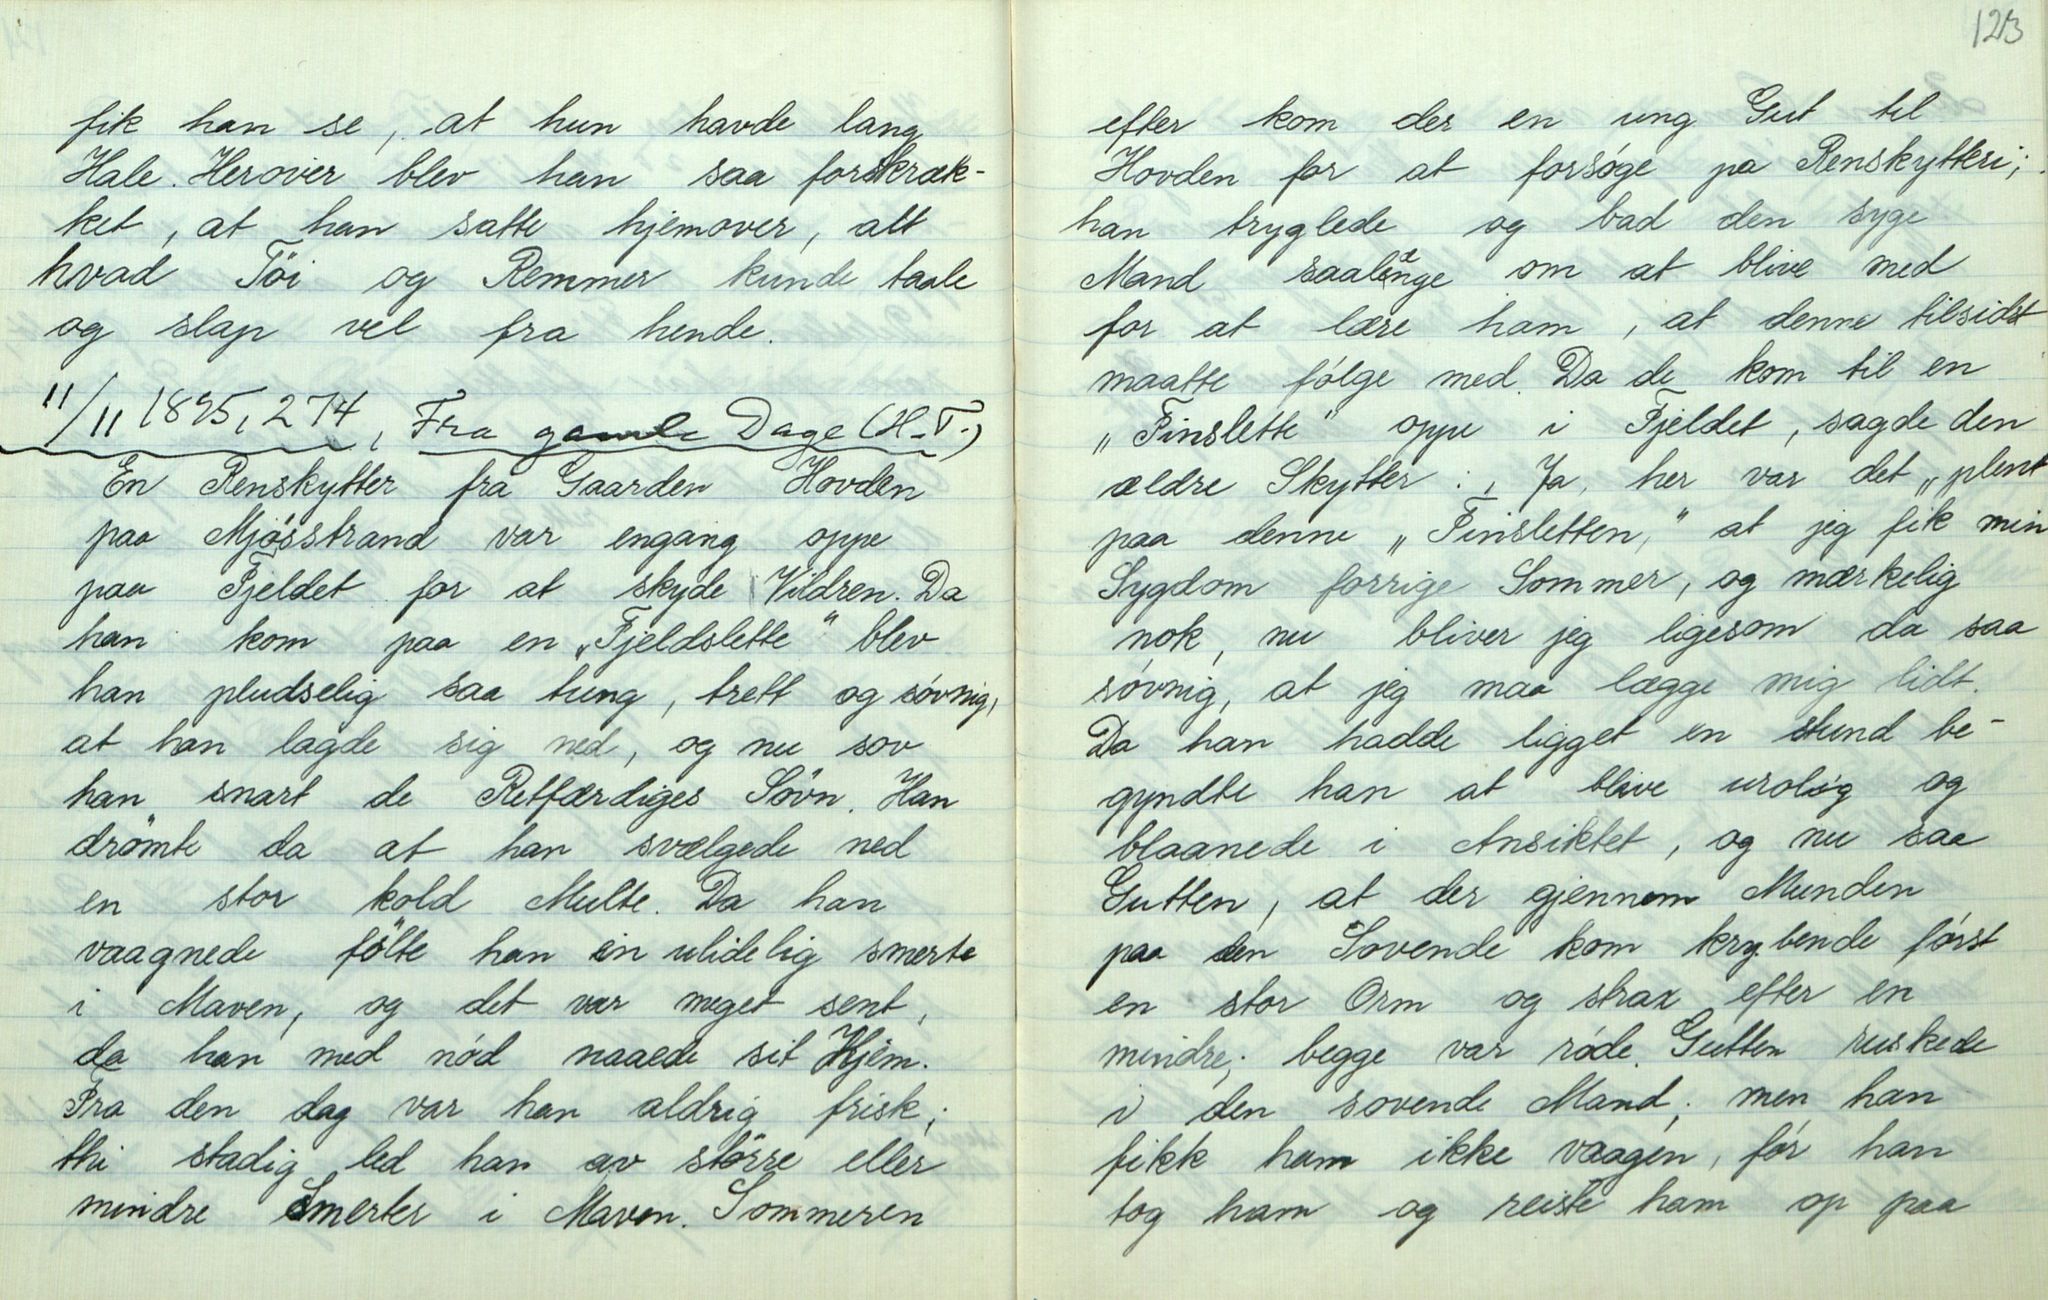 fik han se, at hun havde lang
Hale. Herover blev han saa forskræk-
ket, at han satte hjemover, alt
hvad Töi og Remmer kunde taale
og slap vel fra hende.
11/11 1895, 274, Fra gamle Dage (H.T.)
En Renskytter fra Gaarden Hovden
paa Mjösstrand var engang oppe
paa Fjeldet for at skyde Vildren. Da
han kom paa en „Fjeldslette" blev
han pludselig saa tung, trett og sóvnig,
at han lagde sig ned, og nu sov
han snart de Retfærdiges Sövn. Han
drömte da at han svælgede ned
en stor kold Multe. Da han
vaagnede fölte han en ulidelig smerte
i Maven, og det var meget sent,
da han med nód naaede sit Hjem.
Fra den dag var han aldrig frisk;
thi stadig led han av större eller
mindre Smerter i Maven. Sommeren
123
efter kom der en ung Gut til
Hovden for at forsöge pa Renskytteri;
han tryglede og bad den syge
Mand saalænge om at blive med
for at lære ham, at denne tilsidst
maatte fólge med. Da de kom til en
„Finslette" oppe i Fjeldet, sagde den
ældre Skytter: Ja, her var det „plent
paa denne „Finsletten," at jeg fik min
Sygdom forrige Sommer, og mærkelig
nok, nu bliver jeg ligesom da saa
sóvnig, at jeg maa lægge mig lidt.
Da han hadde ligget en stund be-
gyndte han at blive urolig og
blaanede i Ansiktet, og nu saa
Gutten, at der gjennem Munden
paa den Sovende kom krybende fórst
en stor Orm og strax efter en
mindre; begge var róde. Gutten ruskede
i den sovende Mand; men han
fikk ham ikke vaagen, fór han
tog ham og reiste ham op paa